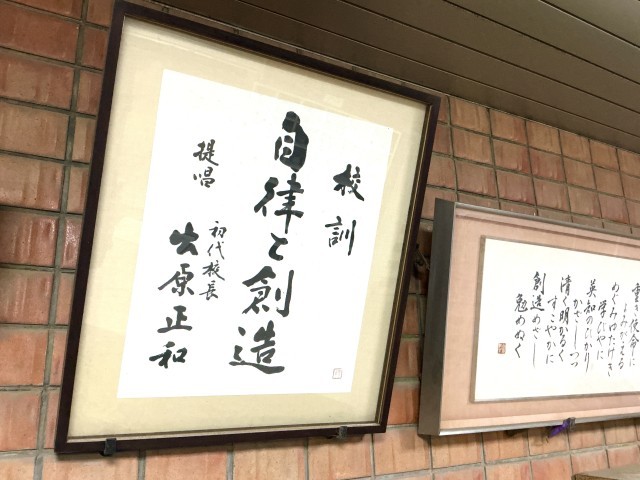 校訓
自律と創造
提唱
初代校長
出原正和
重き使命に
よみがえる
めぐみゆたけき
学びやに
英知のひかり
かざしつつ
清く明かるく
すこやかに
創造めざし
勉めぬく